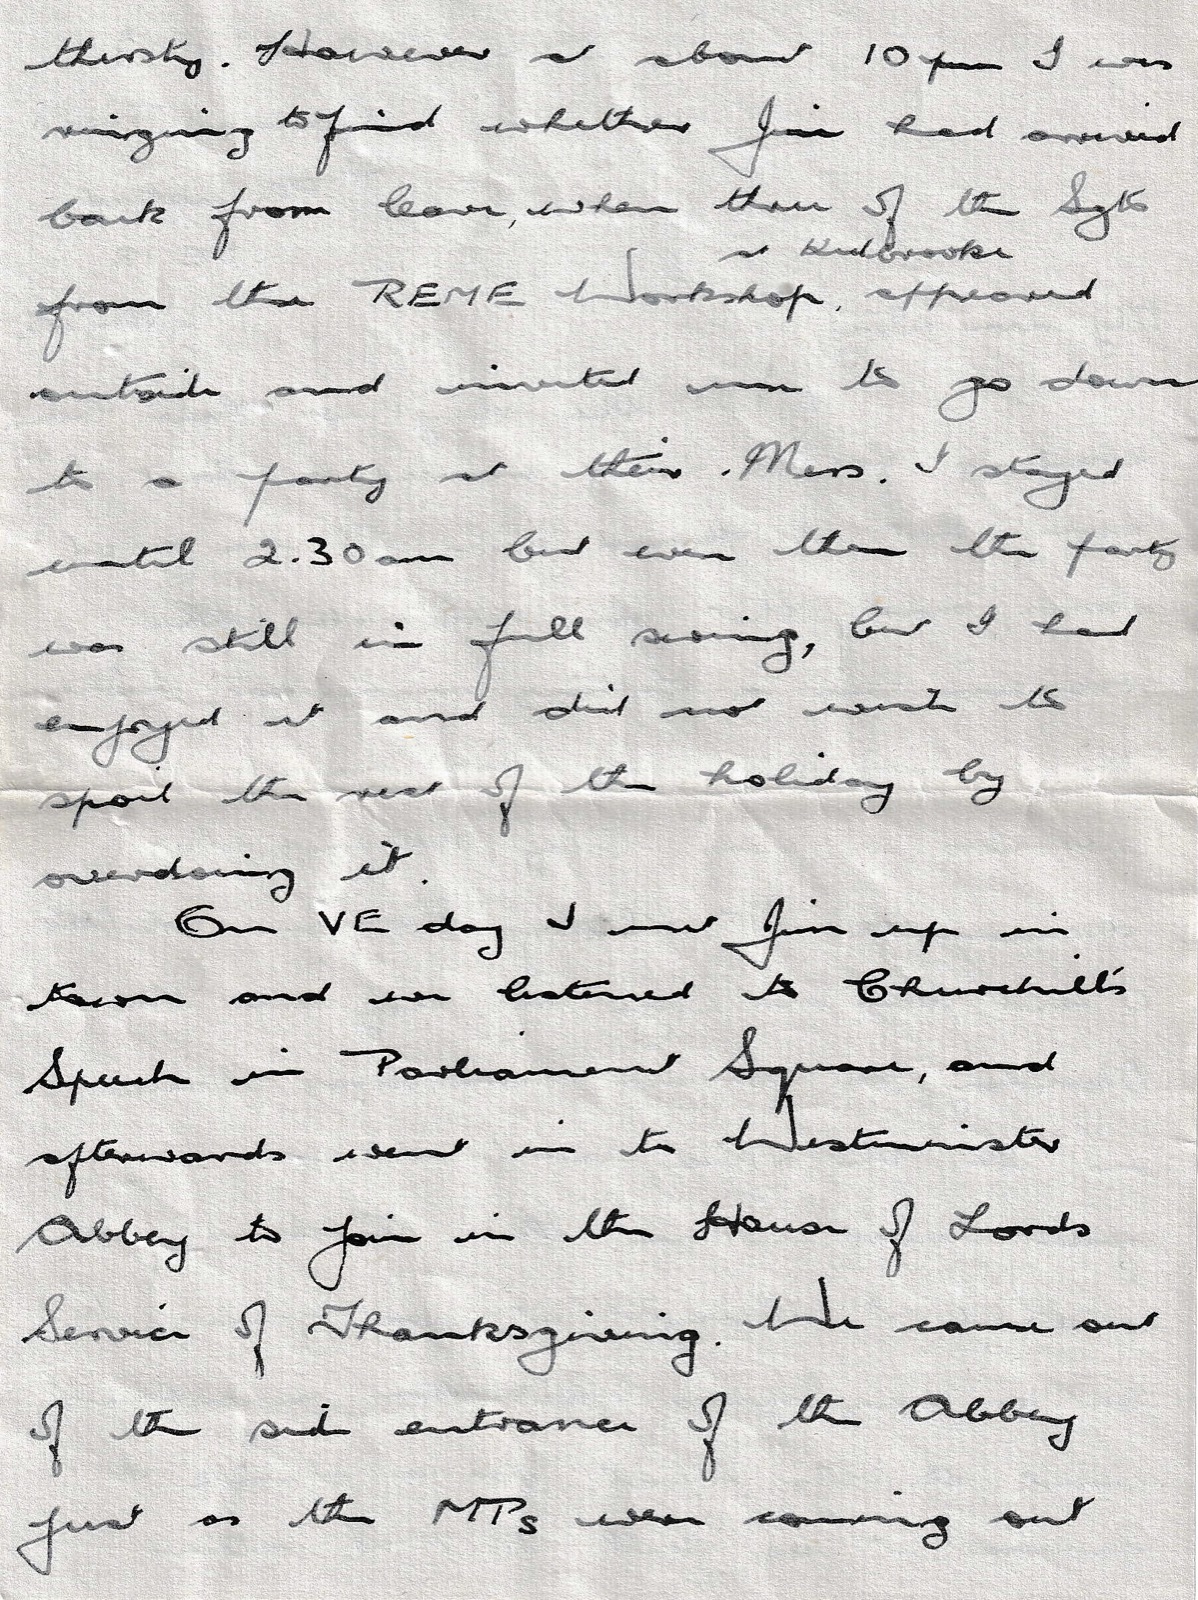 thirsty. However at about 10 pm I was
ringing to find whether Jim had arrived
back from leave, when three of the Sgts
at Kidbrooke
from the REME Workshop, appeared
outside and invited me to go down
to a party at their Mess. I stayed
until 2.30am but even then the party
was still in full swing, but I had
enjoyed it and did not wish to
spoil the rest of the holiday by
overdoing it.
On VE day I met Jim up in
town and we listened to Churchill's
Speech in Parliament Square, and
afterwards went in to Westminster
Abbey to join in the House of Lords
Service of Thanksgiving. We came out
of the side entrance of the Abbey
just as the MPs were coming out